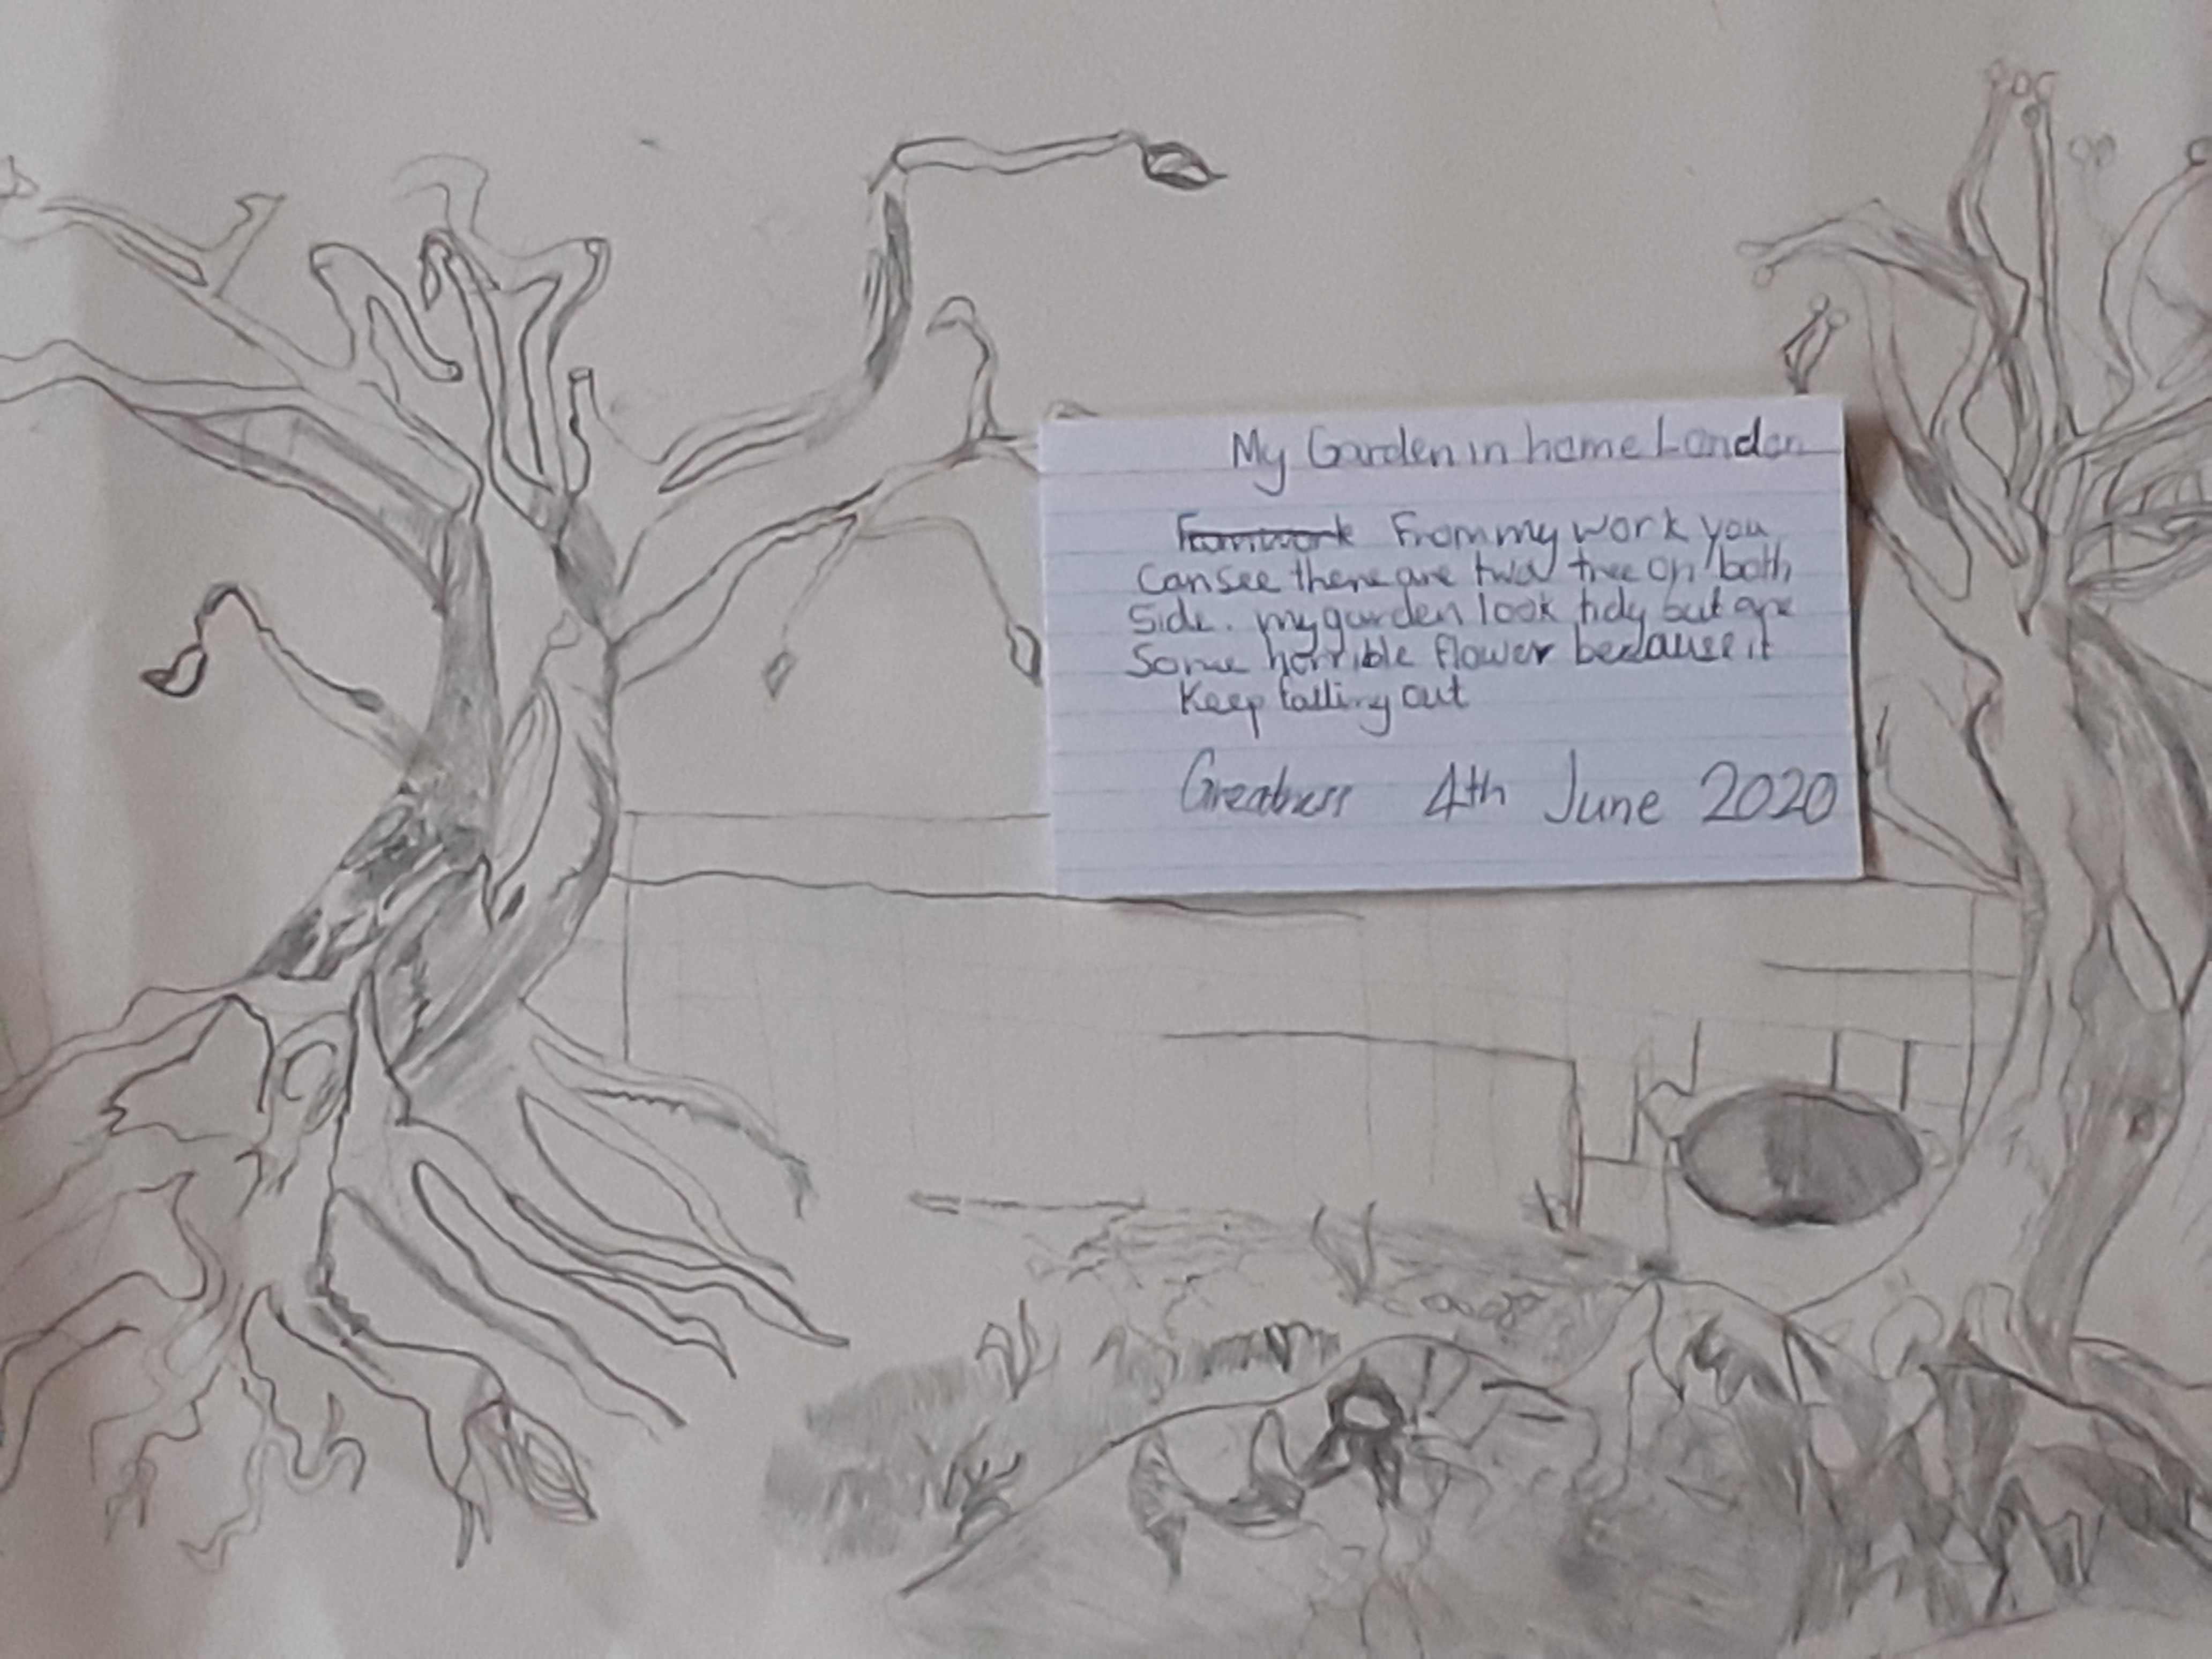 My Garden in home London
From work From my work you
can see there are two tree on both
Side. my garden look tidy but are
Some horrible flower because it
Keep falling out
Greatness 4th June 2020